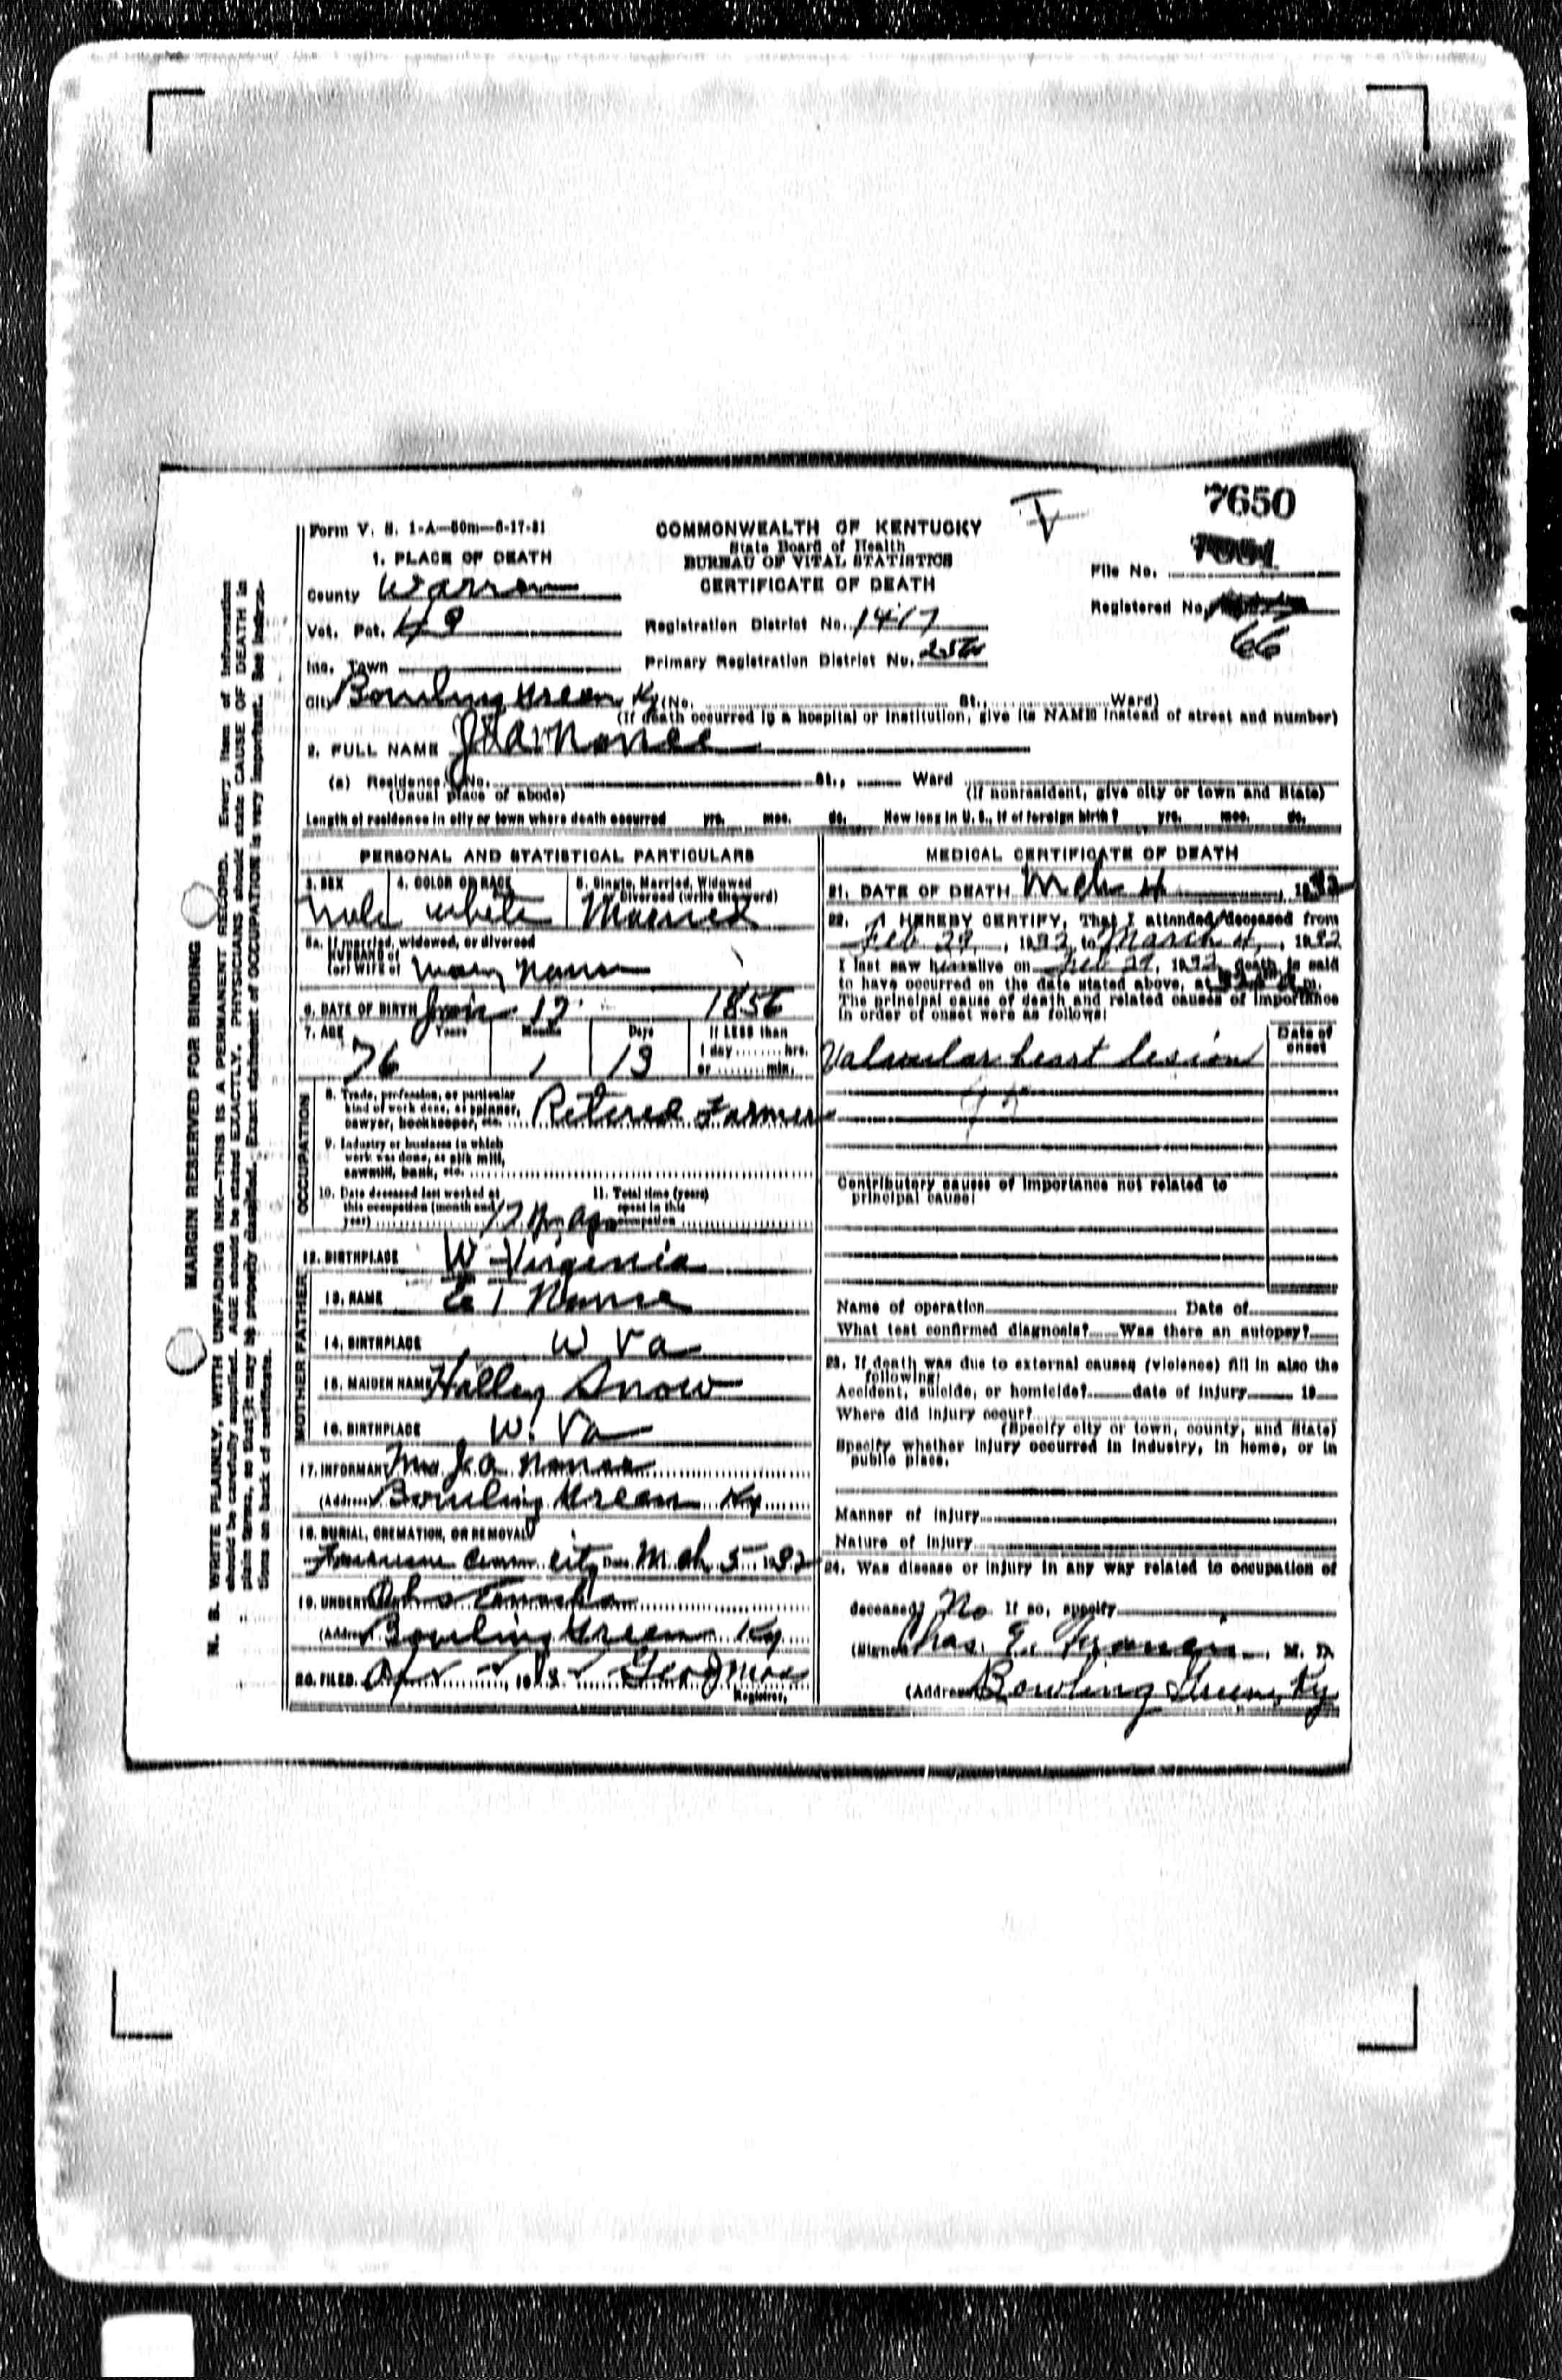 7650
Form V. S. 1-A—50m—6-17-31
COMMONWEALTH OF KENTUCKY
State Board of Health
BUREAU OF VITAL STATISTICS
CERTIFICATE OF DEATH
1. PLACE OF DEATH
File No.
County Warren
Registered No.
66
Vot. Pct. 49
Registration District No. 1417
Inc. Town
Primary Registration District No.
City Bowling Green Ky (No. St., Ward)
(If death occurred in a hospital or institution, give its NAME instead of street and number)
2. FULL NAME
(a) Residence. No. St., Ward
(Usual place of abode) (If nonresident, give city or town and State)
Length of residence in city or town where death occurred yrs. mos. ds. How long in U. S., if of foreign birth? yrs. mos. ds.
PERSONAL AND STATISTICAL PARTICULARS
3. SEX 4. COLOR OR RACE 5. Single, Married, Widowed
Divorced (write the word)
Male White Married
5a. If married, widowed, or divorced
HUSBAND of
(or) WIFE of Mary Nance
6. DATE OF BIRTH Jan 17 1856
7. AGE Years Months Days If LESS than
1 day hrs.
or min.
76 1 13
OCCUPATION
8. Trade, profession, or particular
kind of work done, as spinner,
sawyer, bookkeeper, etc. Retired Farmer
9. Industry or business in which
work was done, as silk mill,
sawmill, bank, etc.
10. Date deceased last worked at
this occupation (month and
year)
11. Total time (years)
spent in this
occupation
12. BIRTHPLACE W Virginia
FATHER
13. NAME E T Nance
14. BIRTHPLACE W Va
MOTHER
15. MAIDEN NAME Halley Snow
16. BIRTHPLACE W. Va
17. INFORMANT Mrs J A Nance
(Address) Bowling Green Ky
18. BURIAL, CREMATION, OR REMOVAL
city Date Mch 5 1932
19. UNDERTAKER
(Address) Bowling Green Ky
20. FILED
Registrar.
MEDICAL CERTIFICATE OF DEATH
21. DATE OF DEATH Mch 4, 1932
22. I HEREBY CERTIFY, That I attended deceased from
Feb 29, 1932, to March 4, 1932
I last saw h alive on Feb 29, 1932, death is said
to have occurred on the date stated above, at m.
The principal cause of death and related causes of importance
in order of onset were as follows:
Date of
onset
Valvular heart lesion
Contributory causes of importance not related to
principal cause:
Name of operation Date of
What test confirmed diagnosis? Was there an autopsy?
23. If death was due to external causes (violence) fill in also the
following:
Accident, suicide, or homicide? date of injury 19
Where did injury occur?
(Specify city or town, county, and State)
Specify whether injury occurred in industry, in home, or in
public place.
Manner of injury
Nature of injury
24. Was disease or injury in any way related to occupation of
deceased? No If so, specify
(Signed) Chas. E. Francis, M. D.
(Address) Bowling Green, Ky
MARGIN RESERVED FOR BINDING
N. B. WRITE PLAINLY, WITH UNFADING INK—THIS IS A PERMANENT RECORD. Every item of information
should be carefully supplied. AGE should be stated EXACTLY. PHYSICIANS should state CAUSE OF DEATH in
plain terms, so that it may be properly classified. Exact statement of OCCUPATION is very important. See instruc-
tions on back of certificate.